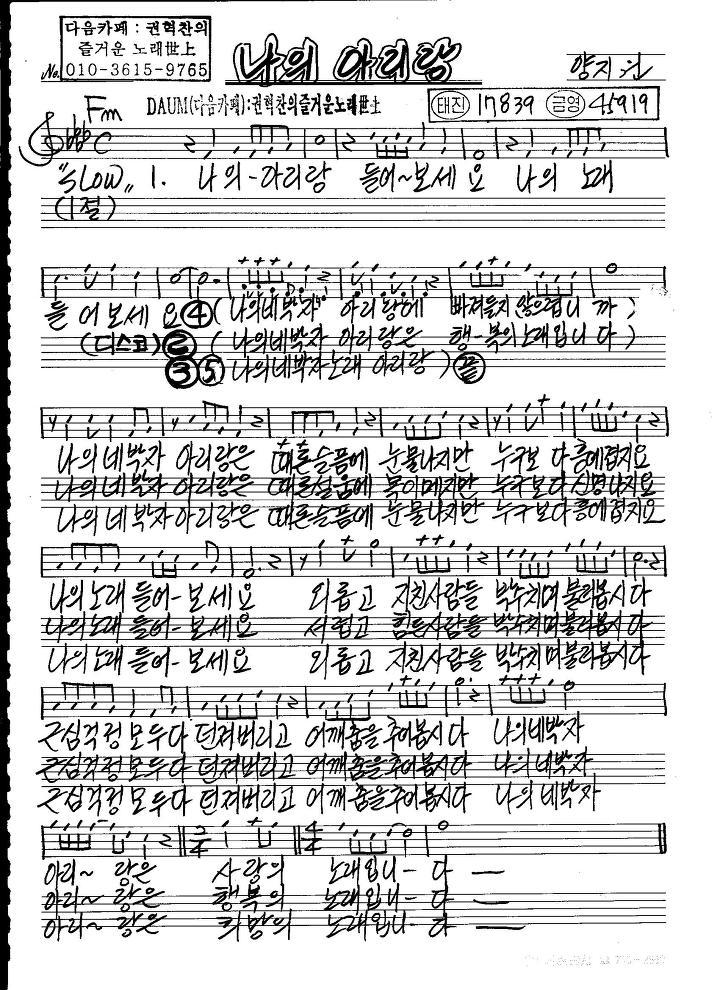 다음카페 : 권혁찬의
즐거운 노래世上
No. 010-3615-9765
나의 아리랑
양지원
Fm
DAUM(다음카페):권혁찬의즐거운노래世上
태진 17839 금영 45919
C
"SLOW" 1. 나의-아리랑 들어~보세요 나의 노래
(1절)
들어보세요 ④ (나의네박자 아리랑에 빠져들지 않으렵니까)
(디스코) ② (나의네박자 아리랑은 행-복의노래입니다)
③⑤ 나의네박자노래 아리랑) 끝
나의네박자 아리랑은 때론슬픔에 눈물나지만 누구보다흥에겹지요
나의네박자 아리랑은 때론설움에 목이메지만 누구보다신명나지요
나의네박자아리랑은 때론슬픔에 눈물나지만 누구보다흥에겹지요
나의노래들어-보세요 외롭고 지친사람들 박수치며불러봅시다
나의노래들어-보세요 서럽고 힘든사람들 박수치며불러봅시다
나의노래들어-보세요 외롭고 지친사람들 박수치며불러봅시다
근심걱정모두다 던져버리고 어깨춤을추어봅시다 나의네박자
근심걱정모두다 던져버리고 어깨춤을추어봅시다 나의네박자
근심걱정모두다 던져버리고 어깨춤을추어봅시다 나의네박자
2/4 4/4
아리~랑은 사랑의 노래입니-다 —
아리~랑은 행복의 노래입니-다 —
아리~랑은 희망의 노래입니-다 —